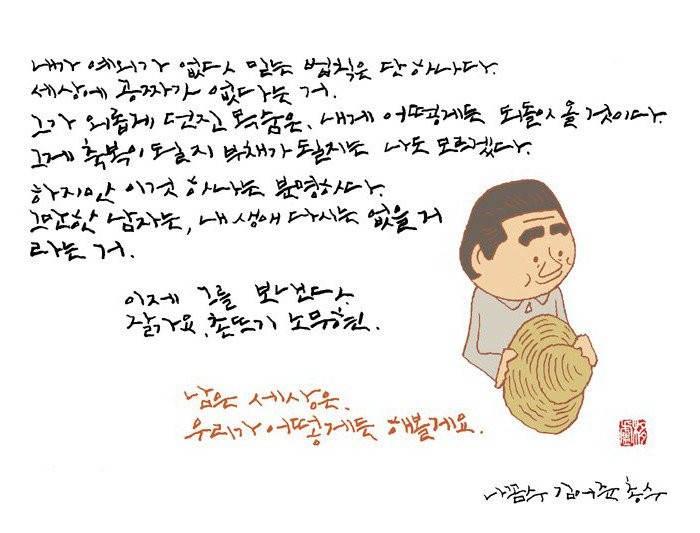 내가 예외가 없다 믿는 법칙은 단 하나다.
세상에 공짜가 없다는 거.
그가 외롭게 던진 목숨은, 내게 어떻게든 되돌아올 것이다.
그게 축복이 될지 부채가 될지는 나도 모르겠다.
하지만 이것 하나는 분명하다.
그만한 남자는, 내 생애 다시는 없을 거
라는 거.
이제 그를 보낸다.
잘가요, 촌뜨기 노무현.
남은 세상은,
우리가 어떻게든 해볼게요.
나꼼수 김어준 총수